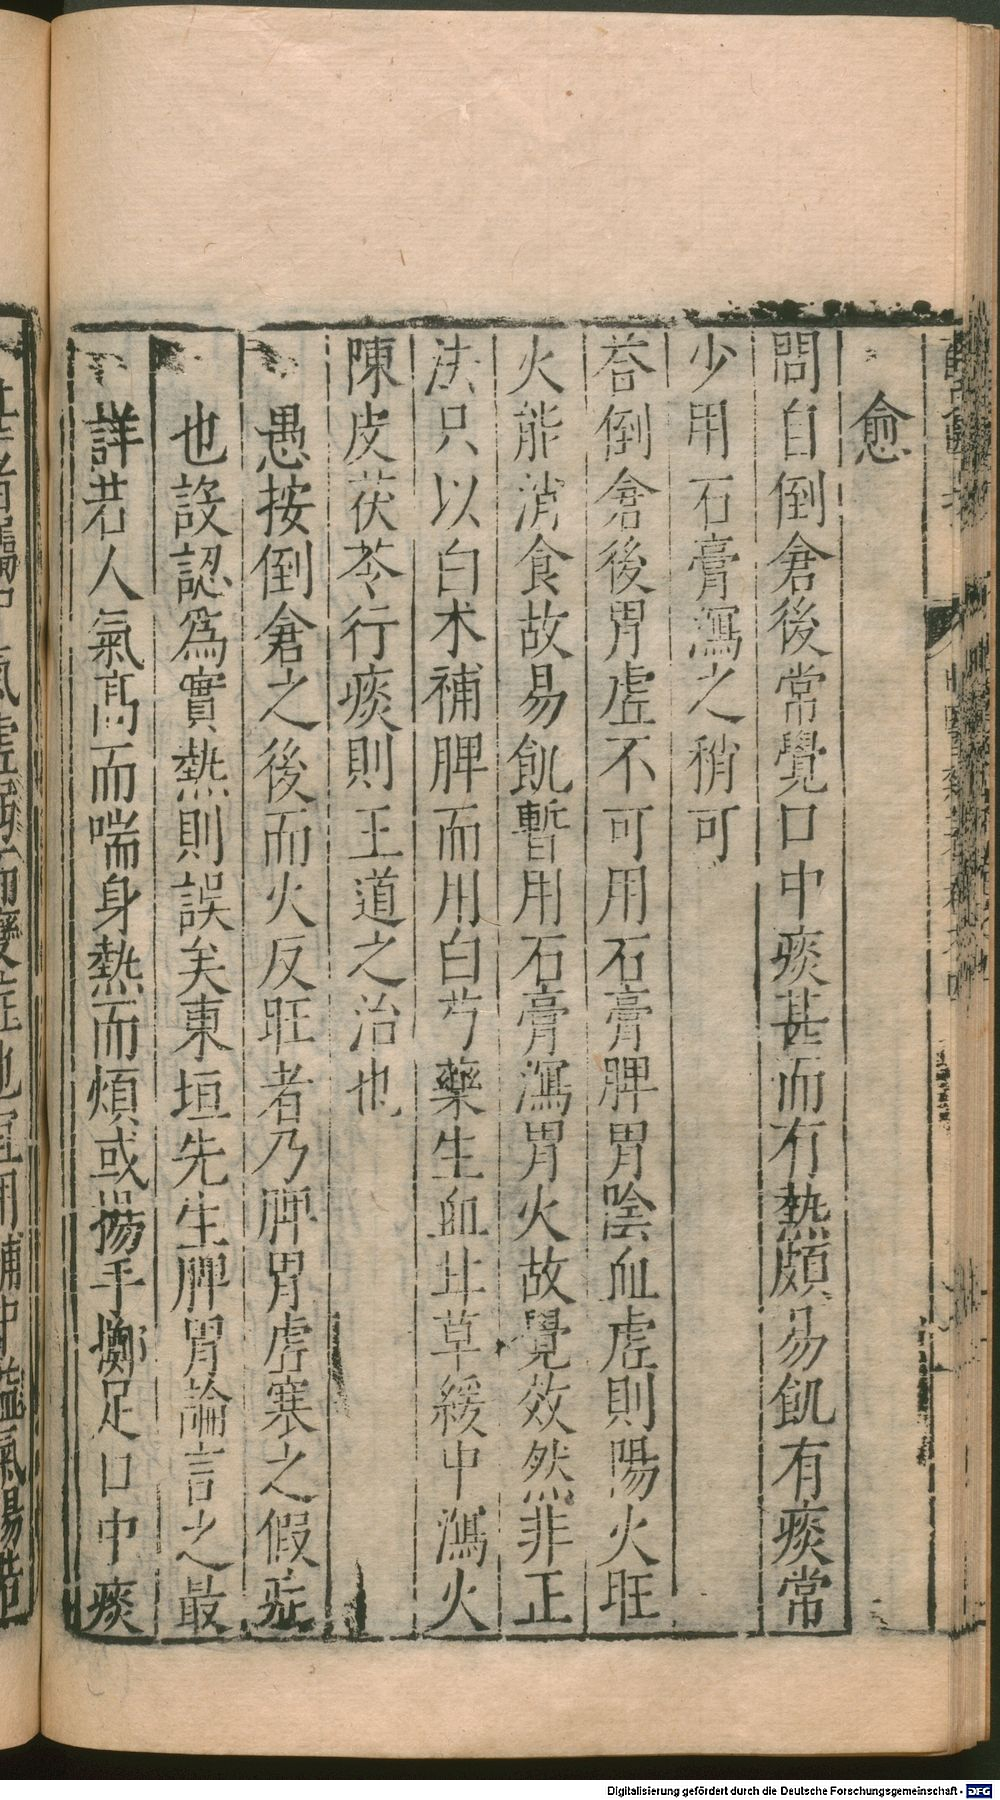 愈
問自倒倉後常覺口中痰甚而有熱頗易飢有痰常
少用石膏瀉之稍可
荅倒倉後胃虛不可用石膏脾胃陰血虛則陽火旺
火能消食故易飢暫用石膏瀉胃火故覺效然非正
法只以白术補脾而用白芍藥生血甘草緩中瀉火
陳皮茯苓行痰則王道之治也
愚按倒倉之後而火反旺者乃脾胃虛寒之假症
也設認爲實熱則誤矣東垣先生脾胃論言之最
詳若人氣高而喘身熱而煩或揚手擲足口中痰
Digitalisierung gefördert durch die Deutsche Forschungsgemeinschaft - DFG